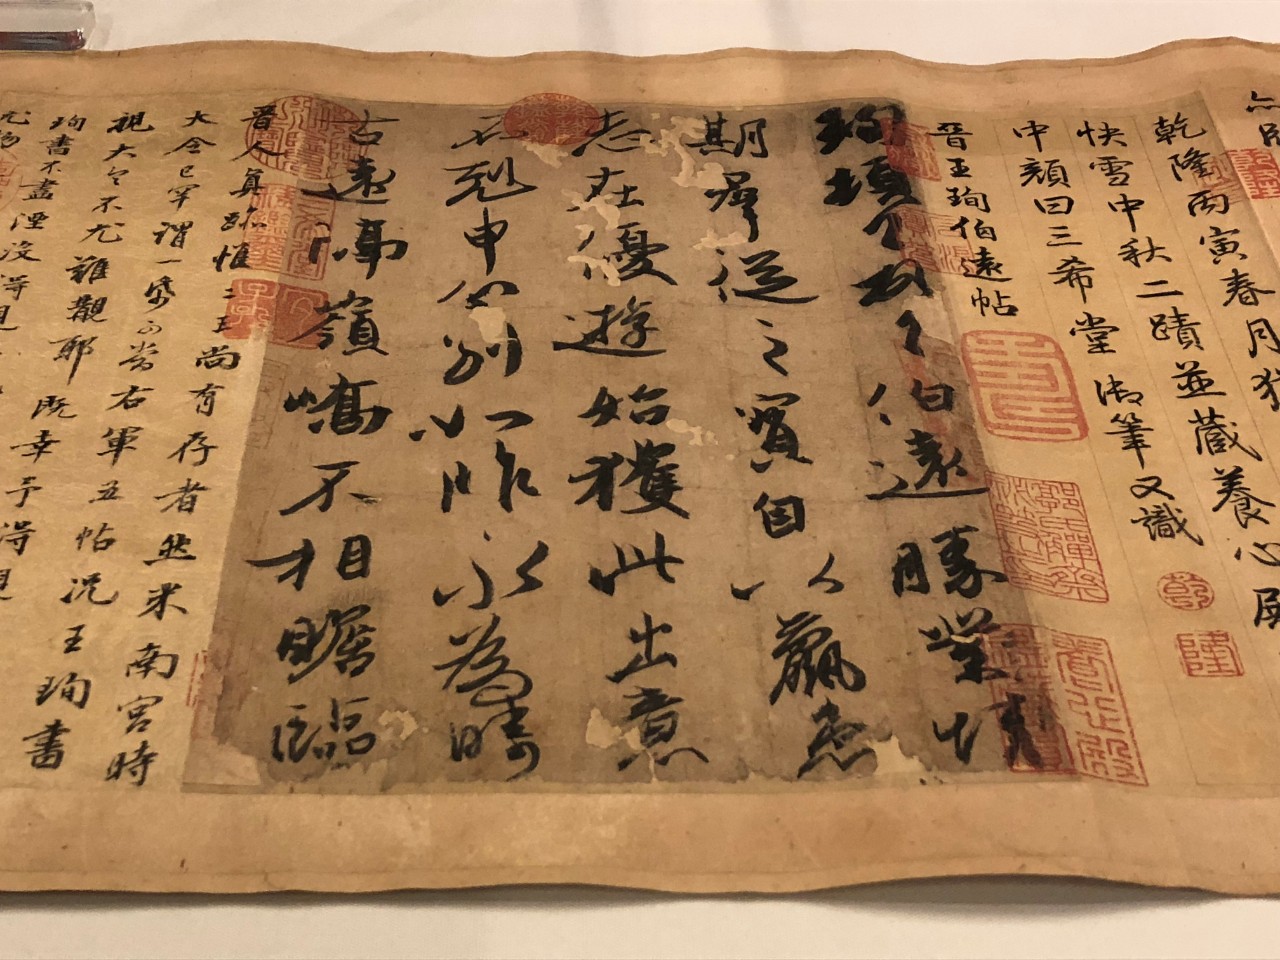 乾隆丙寅春月獲
快雪中秋二蹟並藏養心殿
中顏曰三希堂御筆又識
乾
隆
晉王珣伯遠帖
珣頓首頓首伯遠勝業情
期群從之寶自以羸患
志在優遊始獲此出意
不剋申分別如昨永為疇
古遠隔嶺嶠不相瞻臨
晉人真跡惟二王尚有存者然米南宮時
大令已罕謂一紙可當右軍五帖況王珣書
視大令不尤難覯耶既幸予得見
珣書不盡湮沒得見
尤物